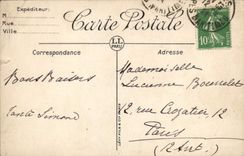 Expéditeur:
M
Rue
Ville
Carte Postale
Correspondance
Adresse
LL
PARIS
10
Bons Baisers
Tante Simone
Mademoiselle
Lucienne
12, rue Crozatier 12
Paris